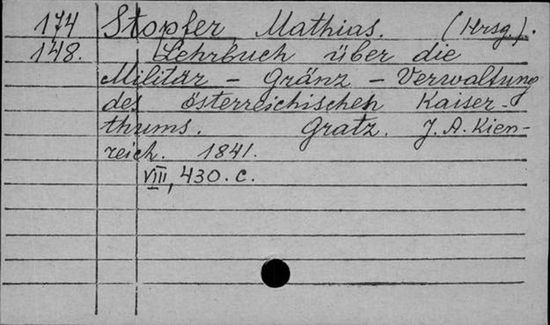 174 Stopfer Mathias. (Hrsg.).
148. Lehrbuch über die
Militär - Gränz - Verwaltung
des österreichischen Kaiser-
thums. Gratz. J. A. Kien-
reich. 1841.
VIII, 430. c.